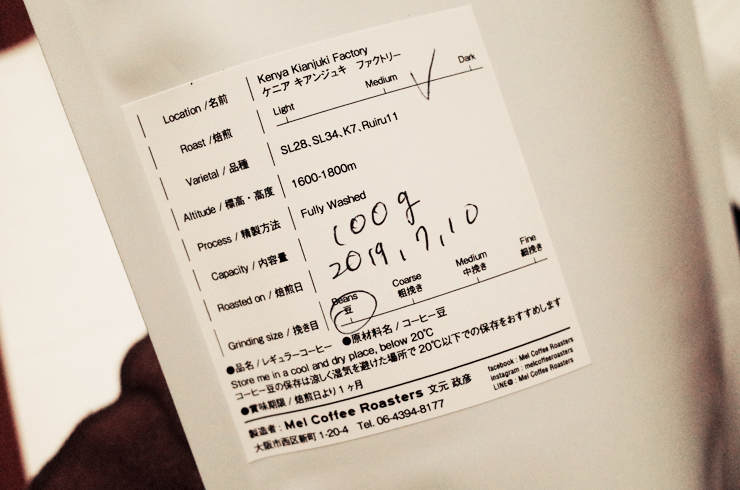 Location /名前 Kenya Kianjuki Factory
ケニア キアンジュキ ファクトリー
Roast /焙煎 Light Medium Dark
Varietal / 品種 SL28、SL34、K7、Ruiru11
Altitude / 標高・高度 1600-1800m
Process / 精製方法 Fully Washed
Capacity / 内容量 100g
Roasted on / 焙煎日 2019,7,10
Grinding size / 挽き目 Beans Coarse Medium Fine
豆 粗挽き 中挽き 細挽き
●品名 / レギュラーコーヒー ●原材料名 / コーヒー豆
Store me in a cool and dry place, below 20℃
コーヒー豆の保存は涼しく湿気を避けた場所で 20℃以下での保存をおすすめします
●賞味期限 / 焙煎日より 1 ヶ月
製造者 : Mel Coffee Roasters 文元 政彦
大阪市西区新町 1-20-4 Tel. 06-4394-8177
facebook : Mel Coffee Roasters
instagram : melcoffeeroasters
LINE@ : Mel Coffee Roasters